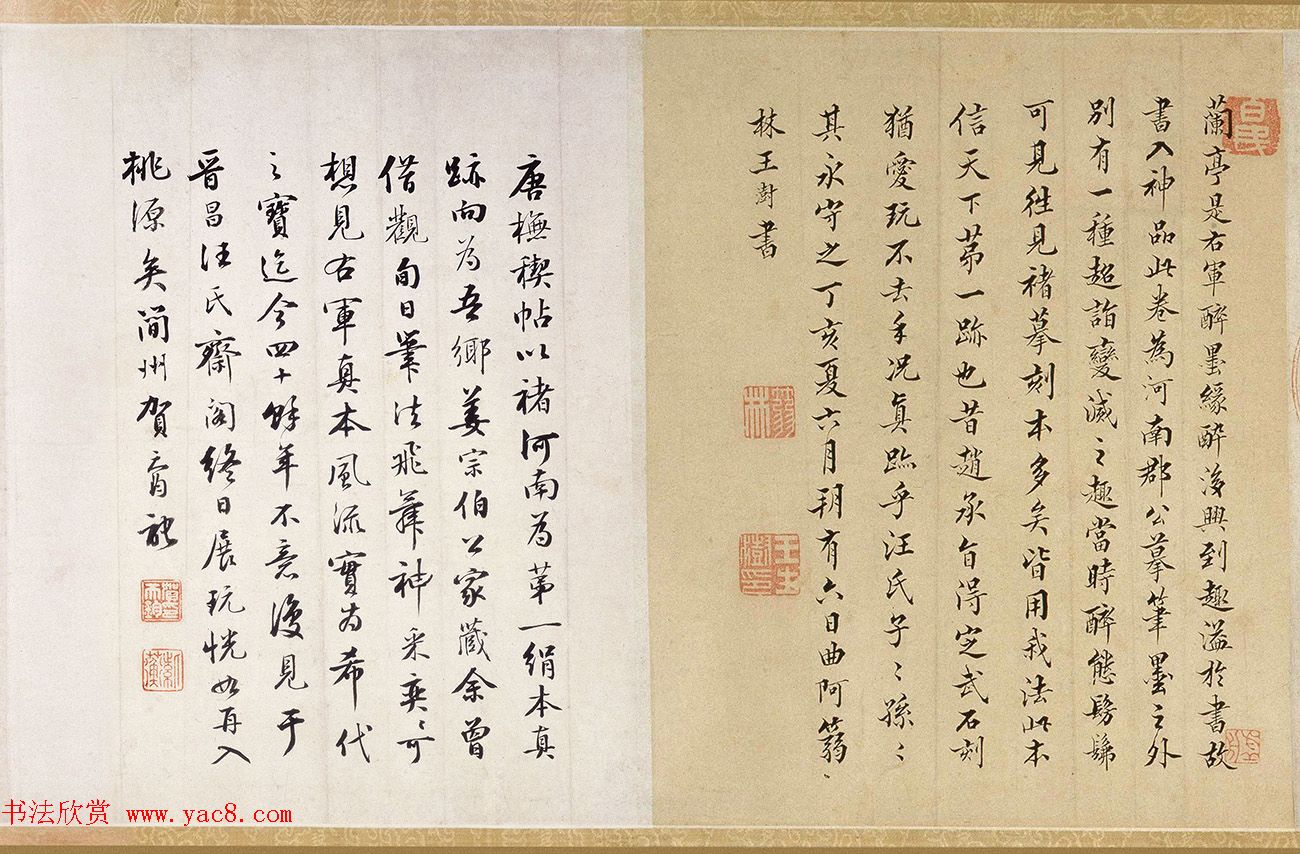 蘭亭是右軍醉墨緣醉後興到趣溢於書故
書入神品此卷為河南郡公摹筆墨之外
別有一種超詣變滅之趣當時醉態髣髴
可見往見褚摹刻本多矣皆用我法此本
信天下苐一跡也昔趙承旨得定武石刻
猶愛玩不去手況真跡乎汪氏子〻孫〻
其永守之丁亥夏六月朔有六日曲阿蒻
林王澍書
唐橅禊帖以褚河南為苐一絹本真
跡向為吾鄉姜宗伯公家藏余曾
借觀旬日筆法飛舞神采奕〻可
想見右軍真本風流實為希代
之寶迄今四十餘年不意復見于
晉昌汪氏齋閣終日展玩恍如再入
桃源矣簡州賀
书法欣赏 www.yac8.com